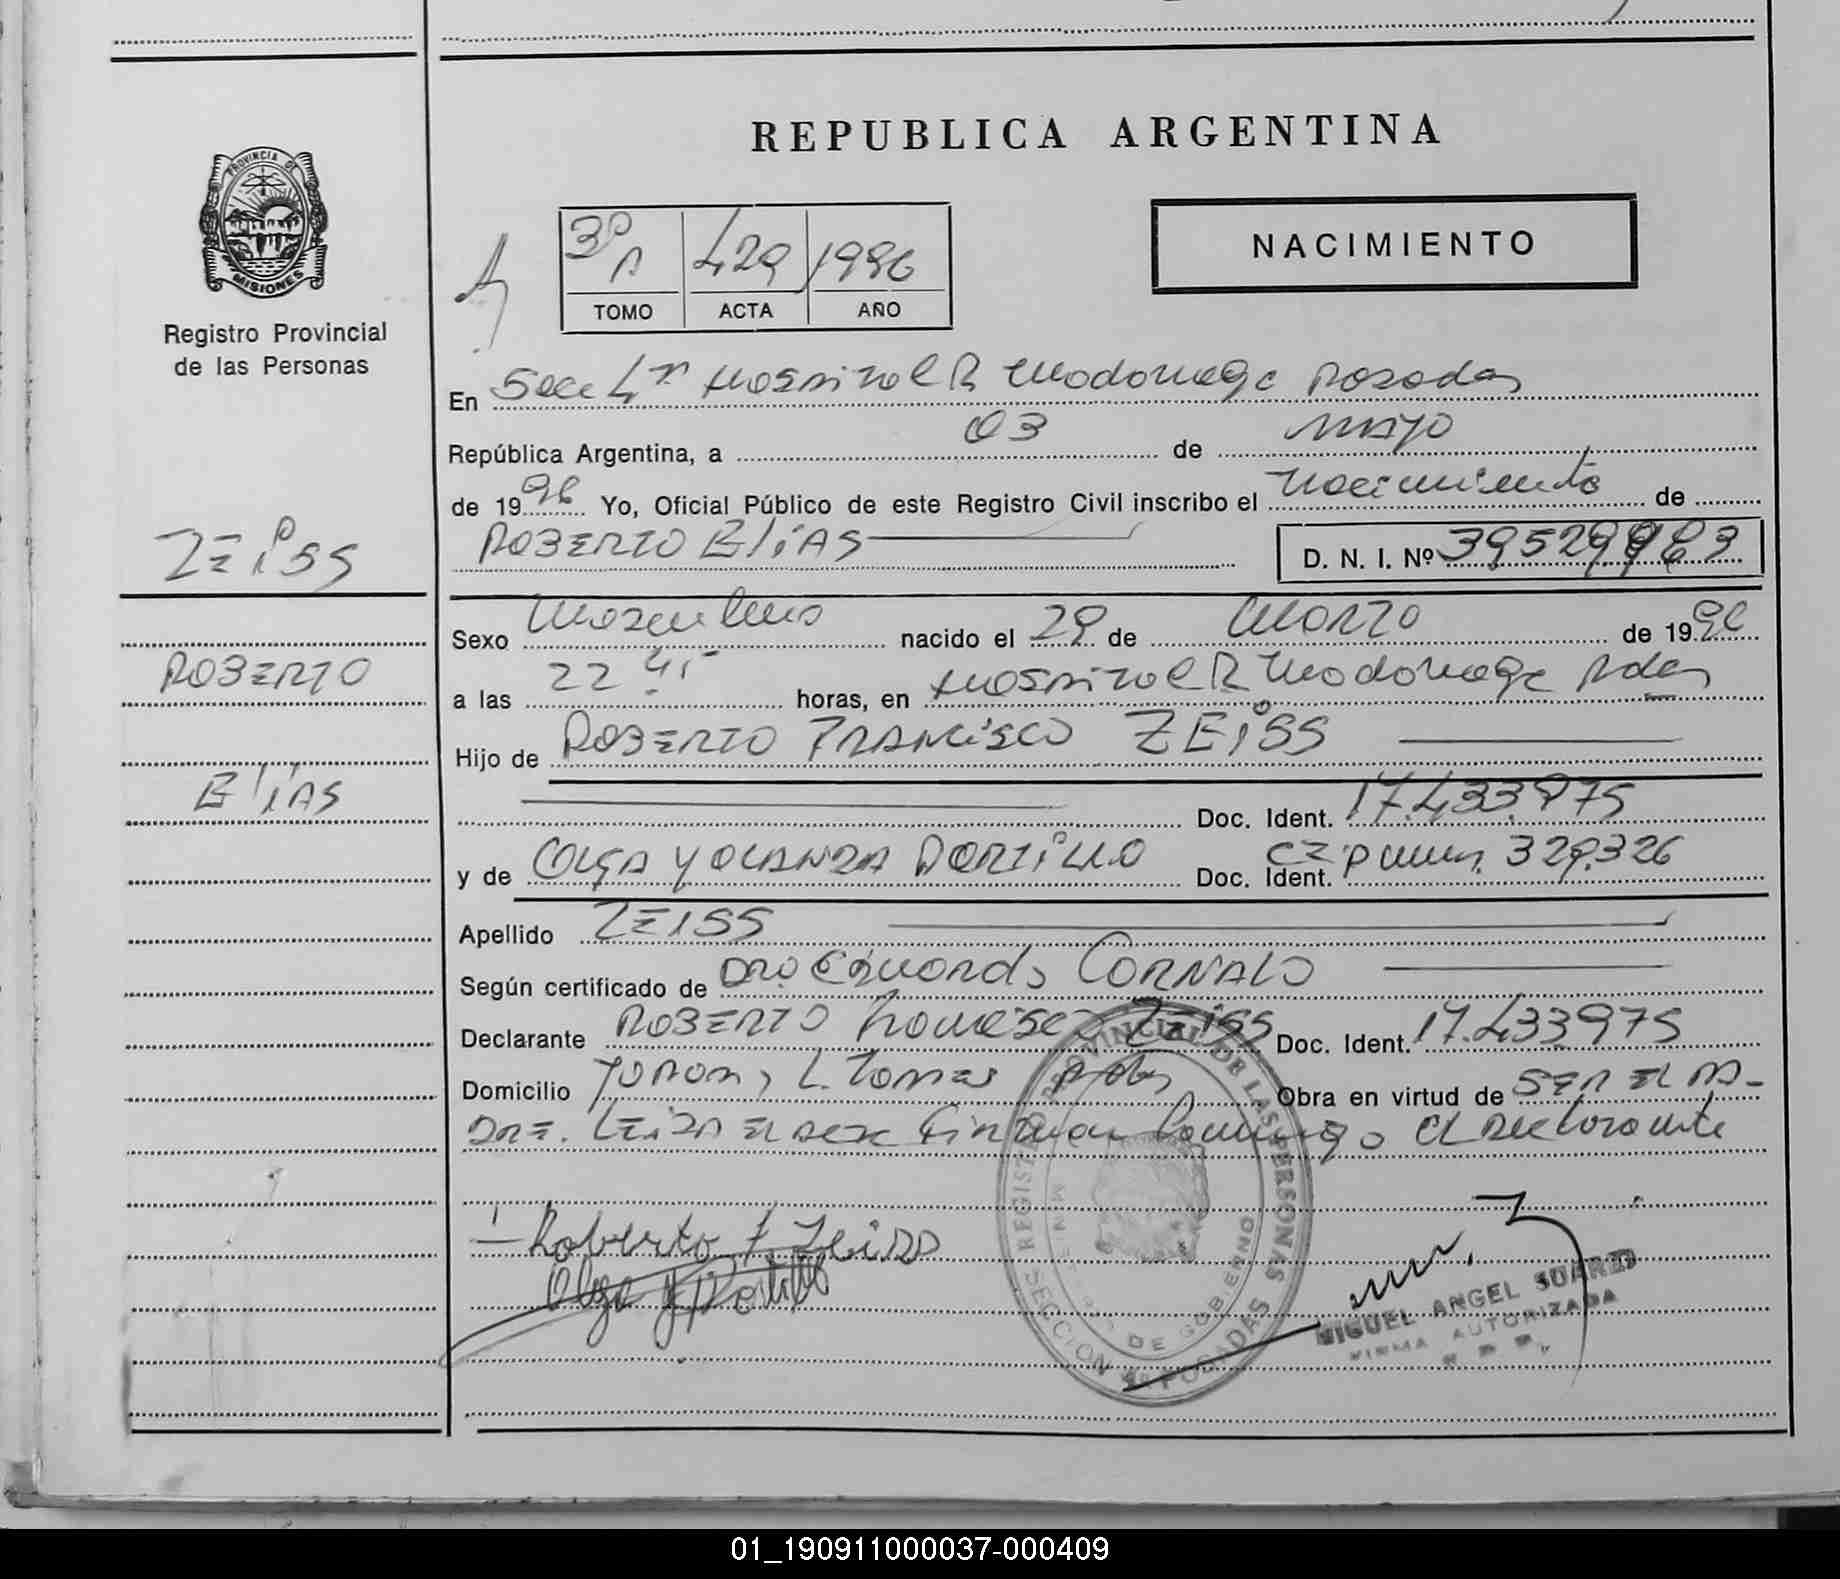 REPUBLICA ARGENTINA
PROVINCIA DE
MISIONES
Registro Provincial
de las Personas
3º A 429 1996
TOMO ACTA AÑO
NACIMIENTO
En Secc 4ª Hospital R Madariaga Posadas
República Argentina, a 03 de Mayo
de 1996 Yo, Oficial Público de este Registro Civil inscribo el Nacimiento de
ROBERTO ELIAS
D. N. I. Nº
ZEISS
ROBERTO
ELIAS
Sexo Masculino nacido el 29 de Marzo de 1996
a las 22 horas, en Hospital R Madariaga Pdas
Hijo de ROBERTO FRANCISCO ZEISS
Doc. Ident. 17.433.975
y de OLGA YOLANDA PORTILLO Doc. Ident. 329.326
Apellido ZEISS
Según certificado de Dro Eduardo CORNALO
Declarante ROBERTO Francisco ZEISS Doc. Ident. 17.433975
Domicilio L. Torres Pdas Obra en virtud de SER EL PA-
DRE. LEIDA EL ACTA Firman Conmigo el Declarante
Roberto F Zeiss
Olga Y Portillo
REGISTRO PROVINCIAL DE LAS PERSONAS
DE GOBIERNO
SECCION 4a POSADAS
MIGUEL ANGEL SUAREZ
FIRMA AUTORIZADA
01_190911000037-000409